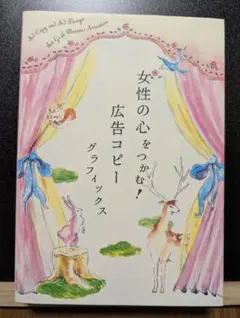 Ad Copy and Ad Design
that Grab Women's Attention
女性の心をつかむ!
広告コピー
グラフィックス